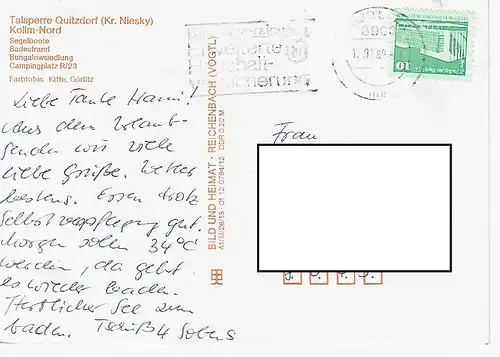 Talsperre Quitzdorf (Kr. Niesky)
Kollm-Nord
Segelboote
Badestrand
Bungalowsiedlung
Campingplatz R/23
Farbfotos Kitte, Görlitz
Liebe Tante Hanni!
Aus dem Urlaub
senden wir viele
liebe Grüße. Wetter
bestens. Essen trotz
Selbstverpflegung gut.
Morgen sollen 34°C
werden, da geht
es wieder baden.
Herrlicher See zum
baden. Tschüß
BILD UND HEIMAT · REICHENBACH (VOGTL)
DDR 0,20 M
Erweiterte
Haushalt-
versicherung
10
Frau